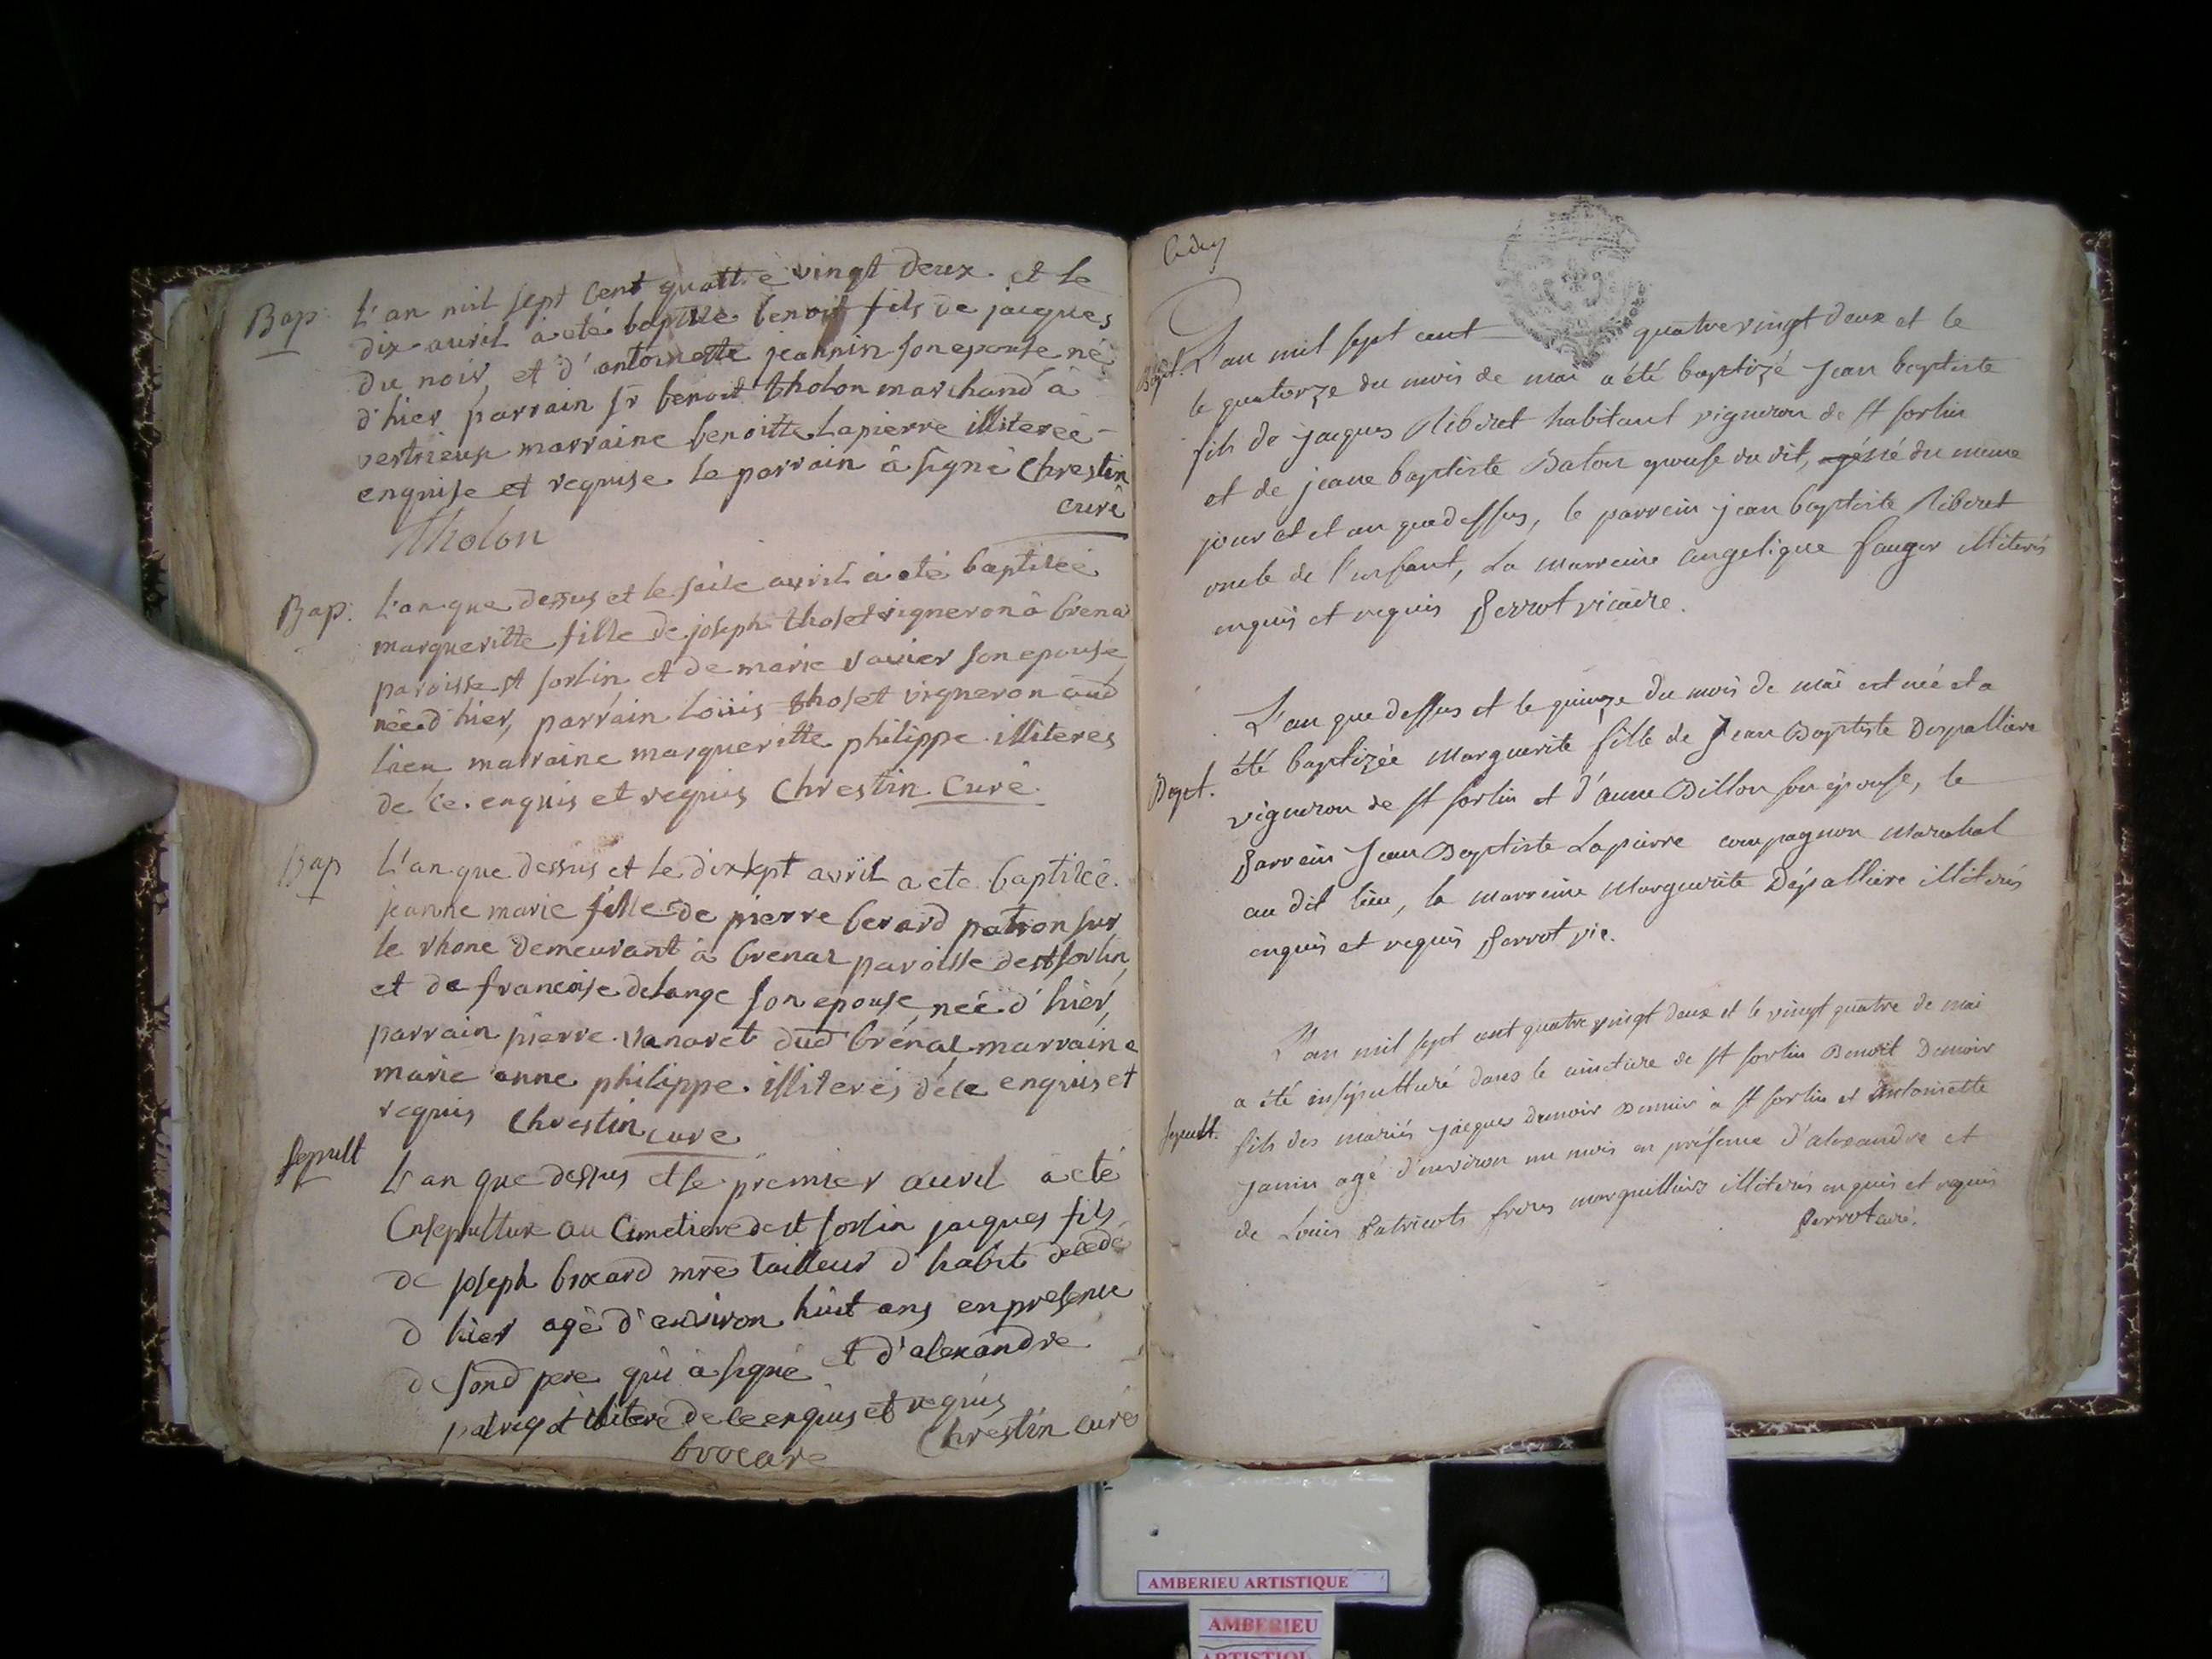 Bap: L'an mil sept cent quattre vingt deux. et le
dix avril à eté baptisé benoit fils de jacques
du noir, et d'antoinette jeannin son epouse né
d'hier parrain sr benoit tholon marchand à
vertrieux marraine benoitte Lapierre illiterée
enquise et requise le parrain à signé Chrestin
curé
Tholon
Bap: L'an que dessus et le saise avril à eté baptisée
margueritte fille de joseph thoset vigneron à brena
paroisse st sorlin et de marie vavier son epouse
née d'hier, parrain Louis thoset vigneron aud
lieu marraine margueritte philippe illiteres
de ce enquis et requis Chrestin Curé
Bap L'an que dessus et le dixsept avril a ete baptisée
jeanne marie fille de pierre berard patron sur
le rhone demeurant à brenaz paroisse de st sorlin
et de francoise delange son epouse, née d'hier,
parrain pierre vanaret dud brénaz marraine
marie anne philippe illiterés de ce enquis et
requis Chrestin cure
Sepult L'an que dessus et le premier avril à eté
Ensepulture au Cimetiere de st sorlin jacques fils
de joseph brocard mre tailleur d'habit decedé
d'hier agé d'environ huit ans en presence
de sond pere qui à signé et d'alexandre
patricot illiteré de ce enquis et requis
brocard Chrestin curé
L'an mil sept cent quatre vingt deux et le
Bapt. le quatorze du mois de mai a été baptizé Jean baptiste
fils de jacques Riberet habitant vigneron de st sorlin
et de jeane baptiste Baton epouse du dit, né du meme
jour et et an que dessus, le parrein jean baptiste Riberet
oncle de l'enfant, La marreine angelique fauger illiterés
enquis et requis Perrot vicaire.
L'an que dessus et le quinze du mois de mai est née et a
été baptizée Marguerite fille de Jean Baptiste Despalliere
Bapt. vigneron de st sorlin et d'anne Dillon son épouse, le
Parrein Jean Baptiste Lapierre compagnon Marechal
au dit lieu, la Marreine Marguerite Dépalliere illiterés
enquis et requis Perrot vic.
L'an mil sept cent quatre vingt deux et le vingt quatre de mai
a été ensépulturé dans le cimetiere de st sorlin Benoit Dunoir
Sepult. fils des mariés jacques dunoir à st sorlin et Antoinette
Janin agé d'environ un mois en présence d'alexandre et
de Louis Patricots freres marguilliers illiterés enquis et requis
Perrot curé.
AMBERIEU ARTISTIQUE
AMBERIEU
ARTISTIQUE